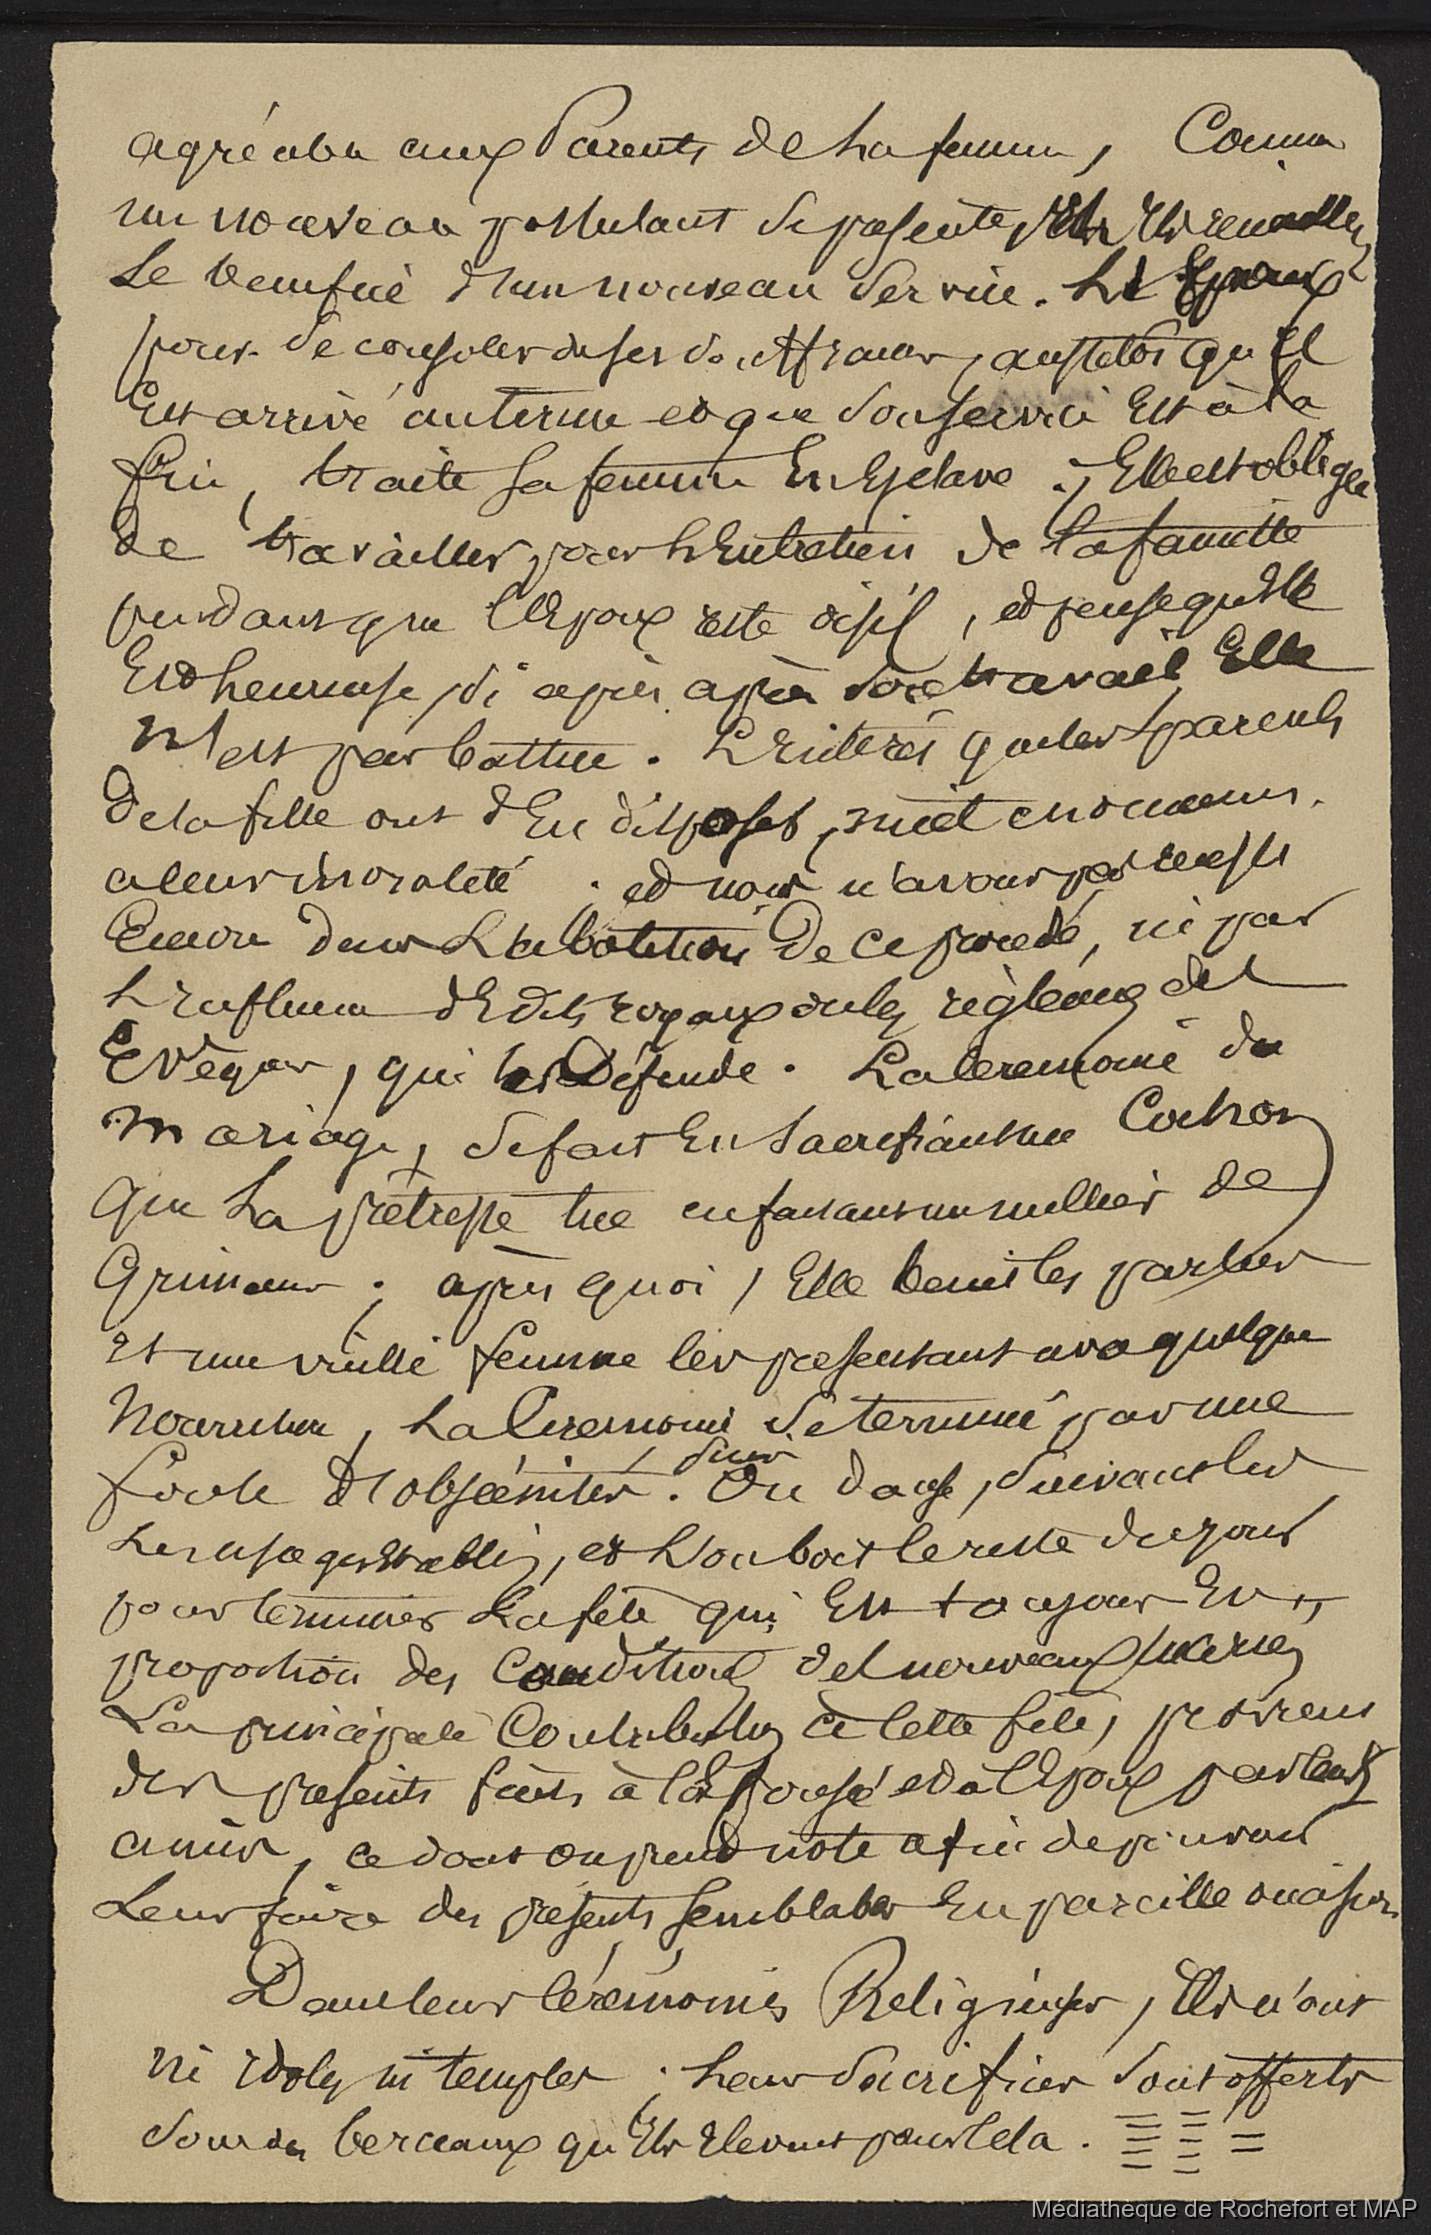 agréable aux Parents de La femme, Comme
un nouveau postulant se presente, Ils Recueille
Le benefice d'un nouveau Service. Le Epoux
pour se consoler de ses souffrances, aussitôt qu'il
Est arrivé au terme et que Son service Est à sa
fin, traite Sa femme En Esclave ; Elle est obligée
de travailler pour L'Entretien de la famille
pendant que l'Epoux reste oisif, et pense qu'Elle
Est heureuse, si après après son travail, Elle
N'est pas battue. L'Intérêt que les parents
de la fille ont d'En disposer, nuit
a leur moralité ; et nous n'avons pas reussi
Encore dans L'abolition De ce procedé, ni par
L'influence d'Edits royaux ou les règlements des
Evêques, qui les Défende. La Ceremonie du
Mariage, se fait En Sacrifiant un Cochon
Que La prêtresse tue en faisant un millier de
Grimaces ; après quoi, Elle benit les parties
Et une vieille femme les presentant avec quelque
Nourriture, La Ceremonie se termine par une
foule d'obscénités.
On danse, suivant les
Les usages Etablis, et L'on boit le reste du jour
pour terminer La fête qui Est toujours En
proportion des Conditions des nouveaux Mariés
La principale Contribution à cette fête, provient
des presents faits à L'Epouse et à l'Epoux par leurs
amis, ce dont on prend note afin de pouvoir
Leur faire des présents Semblables En pareille occasion.
Dans leurs Cérémonies Religieuses, Ils n'ont
ni Idoles ni temples ; Leurs Sacrifices Sont offerts
Sous des berceaux qu'Ils Elevent pour Cela.
Médiathèque de Rochefort et MAP